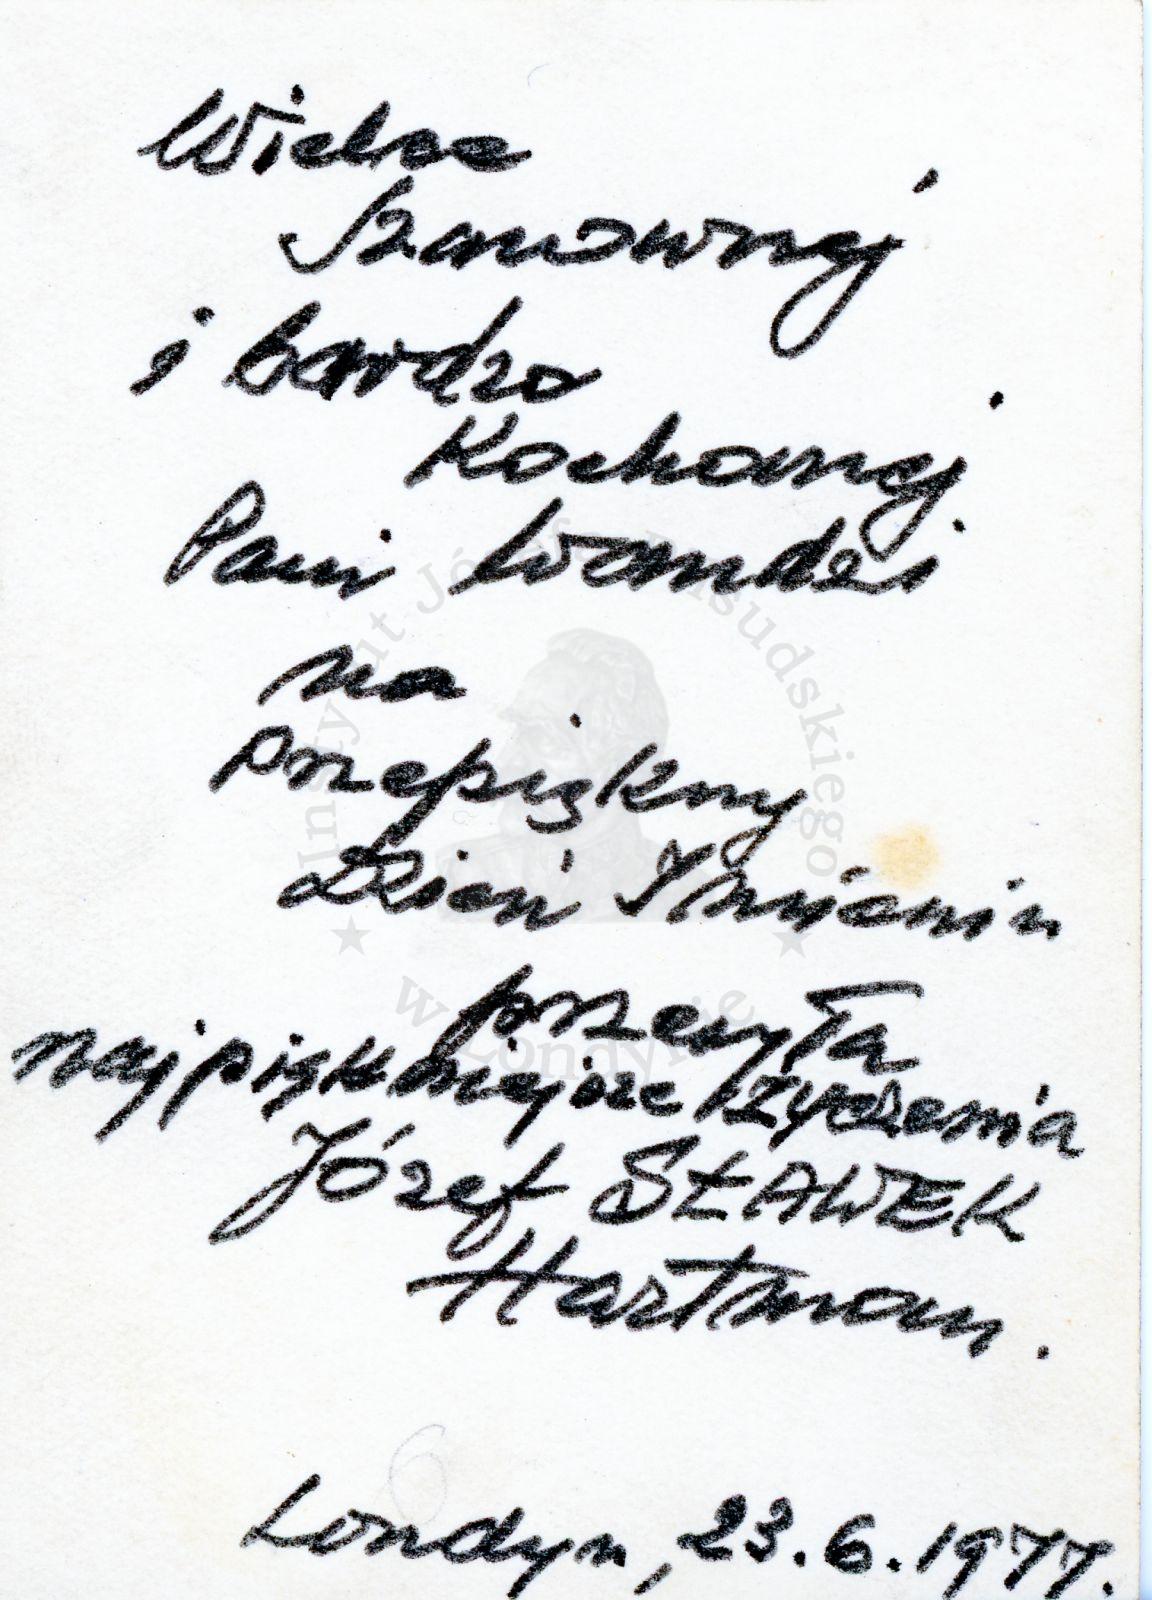 Wielce
Szanownej
i bardzo
Kochanej
Pani Wandzi
na
przepiękny
Dzień Imienin
przesyła
najpiękniejsze życzenia
Józef SŁAWEK
Hartman.
6
Londyn, 23.6.1977.
Instytut Józefa Piłsudskiego
w Londynie